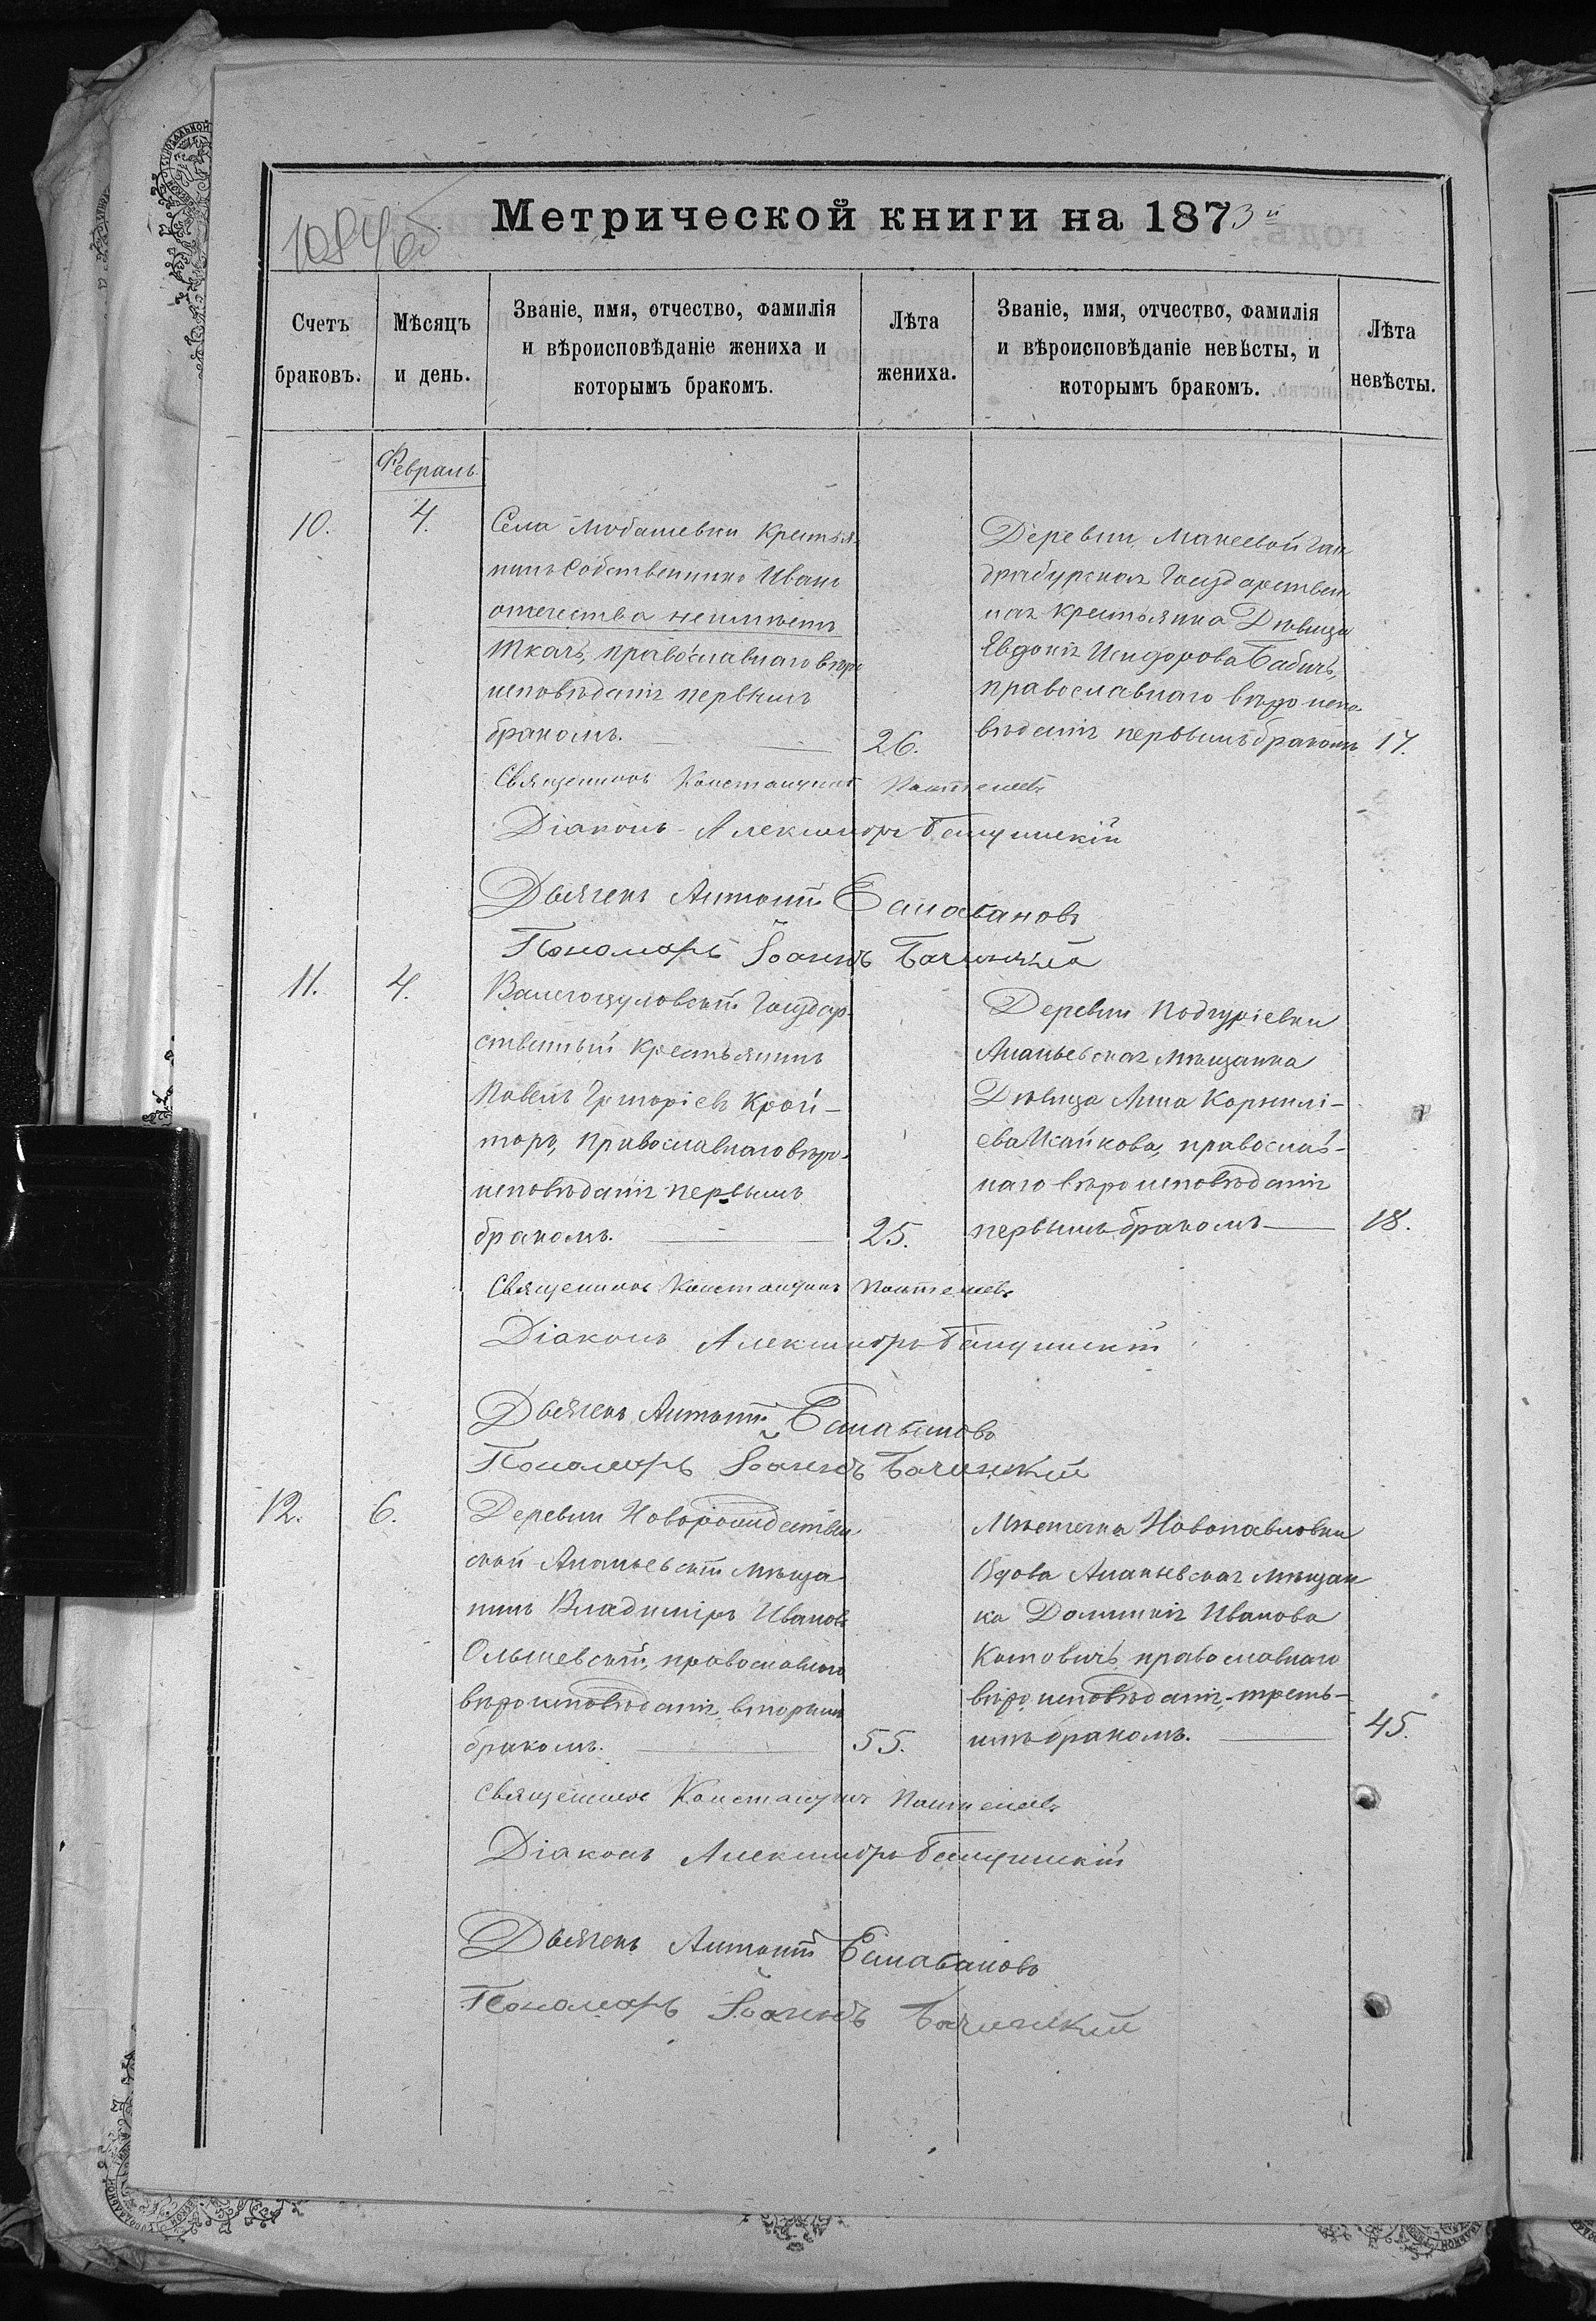 1084об
Метрической книги на 1873й
Счетъ браковъ.
Мѣсяцъ и день.
Званіе, имя, отчество, фамилія
и вѣроисповѣданіе жениха и
которымъ бракомъ.
Лѣта жениха.
Званіе, имя, отчество, фамилія
и вѣроисповѣданіе невѣсты, и
которымъ бракомъ.
Лѣта невѣсты.
Февраль
10.
4.
Села Любашевки крестья-
нинъ собственникъ Иванъ
отечества неимѣетъ
Ткачъ, православнаго вѣро
исповѣданія первымъ
бракомъ.
26.
Деревни Макеевой Ган
драбурская Государствен
ная крестьянка Дѣвица
Евдокія Исидорова Бабичъ,
православнаго вѣро испо-
вѣданія первымъ бракомъ
17.
Священникъ Константинъ
Діаконъ Александръ
Дьячекъ Антоній Балабановъ
Пономарь Іоаннъ Бачинскій
11.
4.
Валегоцуловскій Государ-
ственный крестьянинъ
Павелъ Григоріевъ Крой-
торъ, православнаго вѣро-
исповѣданія первымъ
бракомъ.
25.
Деревни Подгуріевки
Ананьевская мѣщанка
Дѣвица Анна Корнилі-
ева Исайкова, православ-
наго вѣроисповѣданія
первымъ бракомъ
18.
Священникъ Константинъ
Діаконъ Александръ
Дьячекъ Антоній Балабановъ
Пономарь Іоаннъ Бачинскій
12.
6.
Деревни Новорождествен
ской Ананьевскій мѣща
нинъ Владиміръ Ивановъ
Ольшевскій, православнаго
вѣроисповѣданія, вторымъ
бракомъ.
55.
Мѣстечка Новопавловки
Вдова Ананьевская мѣщан
ка Домникія Иванова
Катовичъ, православнаго
вѣро исповѣданія, треть-
имъ бракомъ.
45.
Священникъ Константинъ
Діаконъ Александръ
Дьячекъ Антоній Балабановъ
Пономарь Іоаннъ Бачинскій